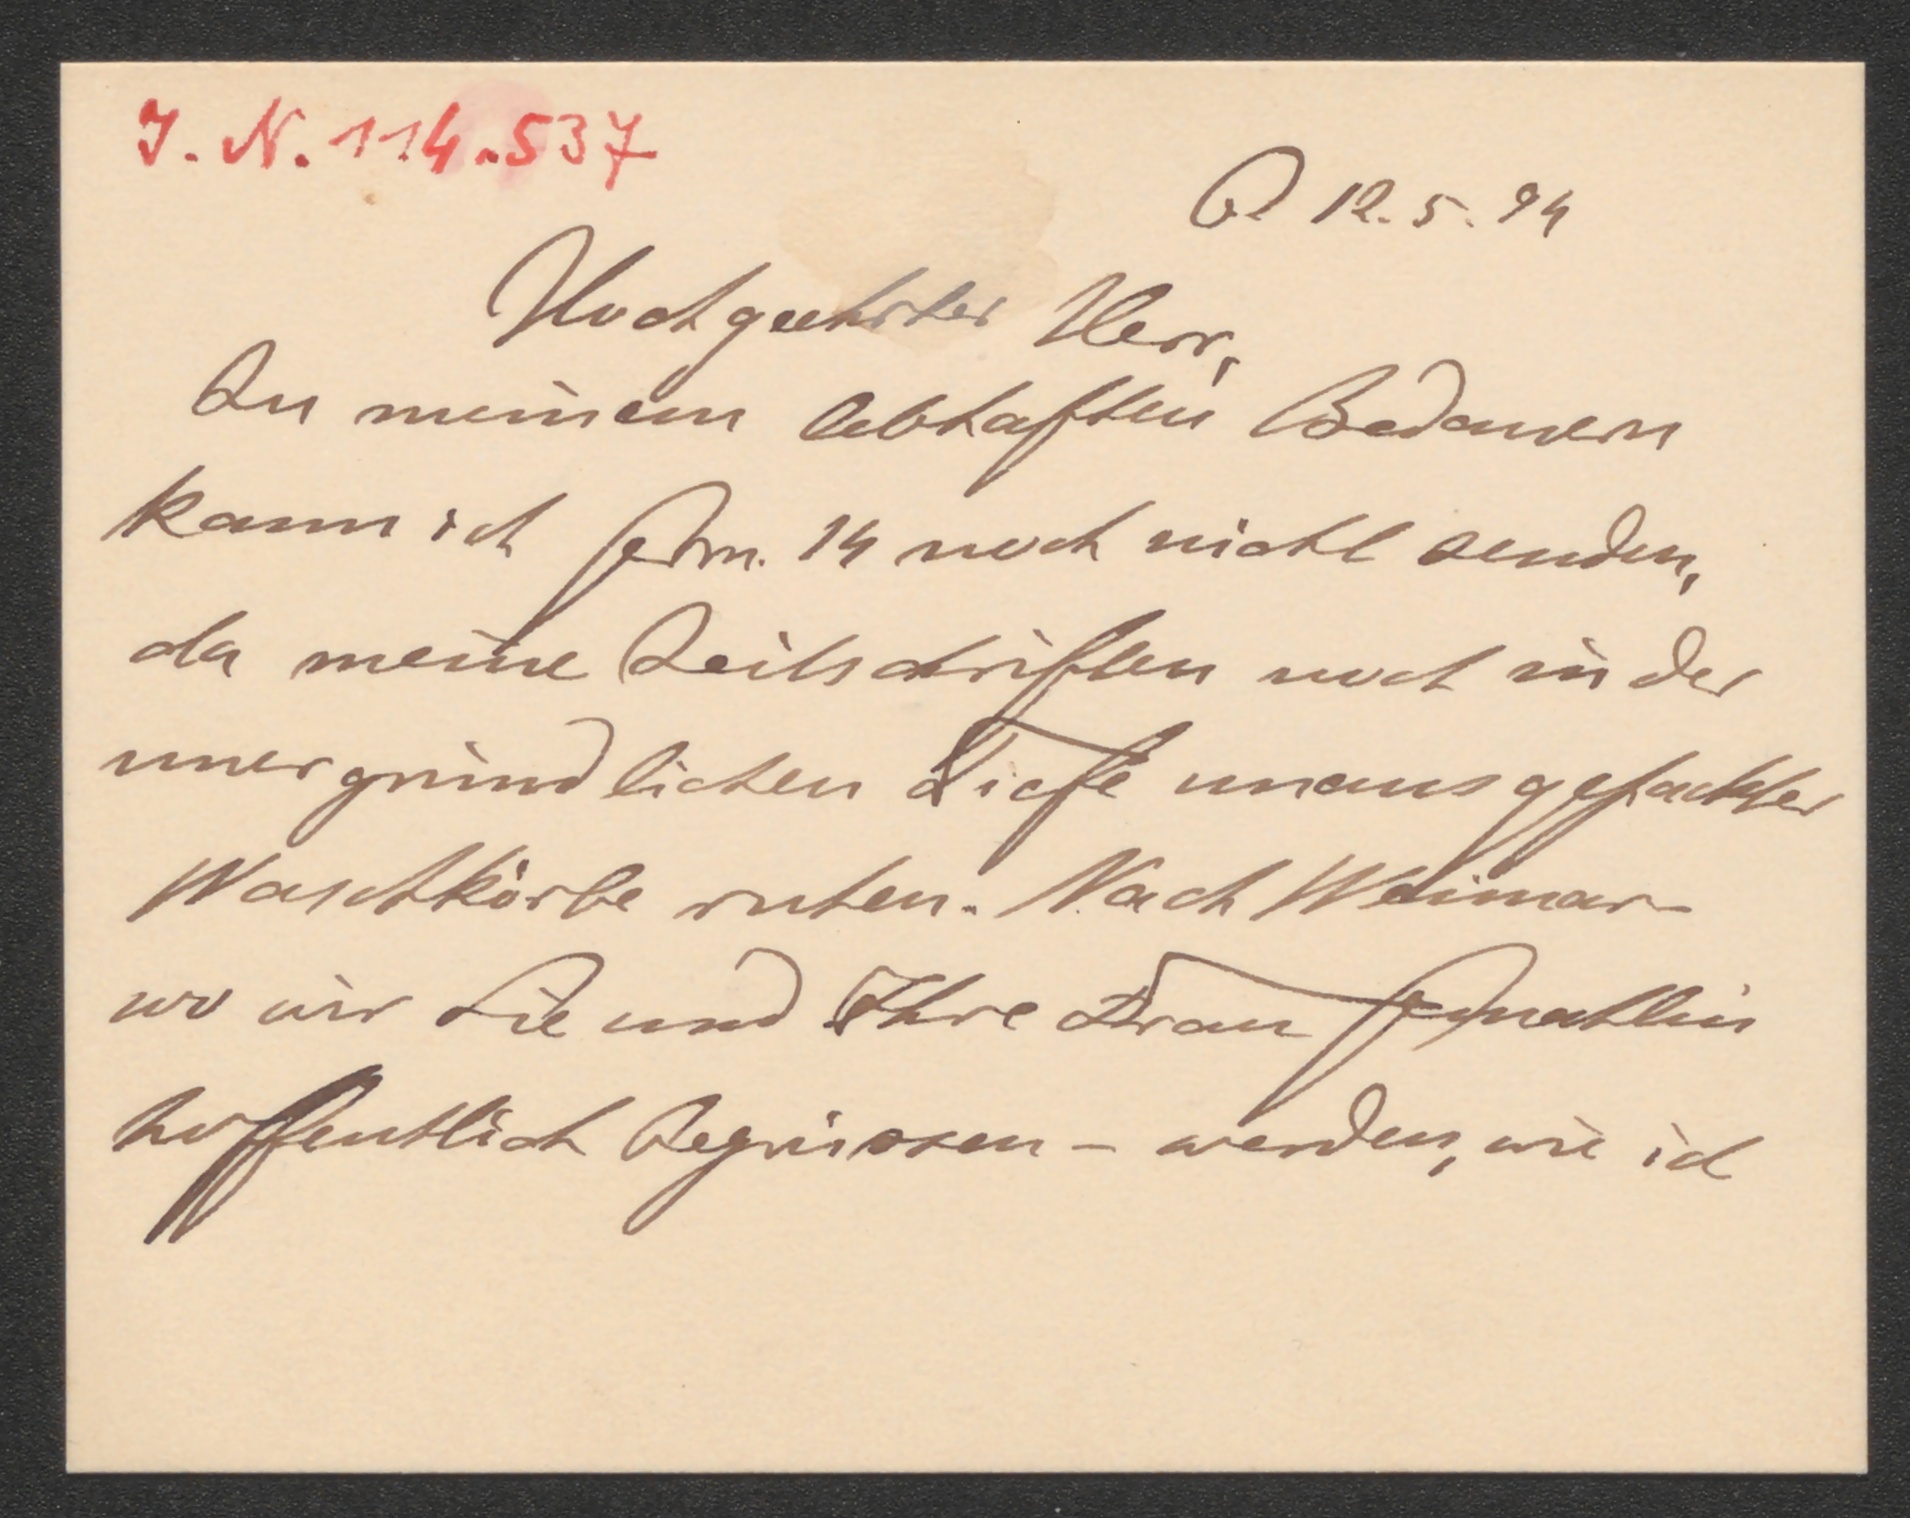 J. N. 114.537
B 12.5.94
Hochgeehrter Herr,
Zu meinem lebhaften Bedauern
kann ich Germ. 14 noch nicht senden,
da meine Zeitschriften noch in der
unergründlichen Tiefe unausgepackter
Waschkörbe ruhen. Nach Weimar –
wo wir Sie und Ihre Frau Gemahlin
hoffentlich begrüssen – werden, wie ich